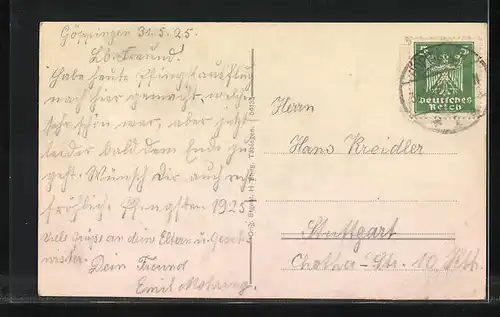 Göppingen 31.5.25.
Lb. Freund!
Habe heute Pfingstausflug
nach hier gemacht, welcher
sehr schön war, aber jetzt
leider bald dem Ende zu
geht. Wünsch Dir auch recht
fröhliche Pfingsten 1925
Viele Grüße an dein Eltern u. Geschwister.
Dein Freund
Emil
5 5
Deutsches
Reich
Herrn
Hans Kreidler
Stuttgart
Str. 10